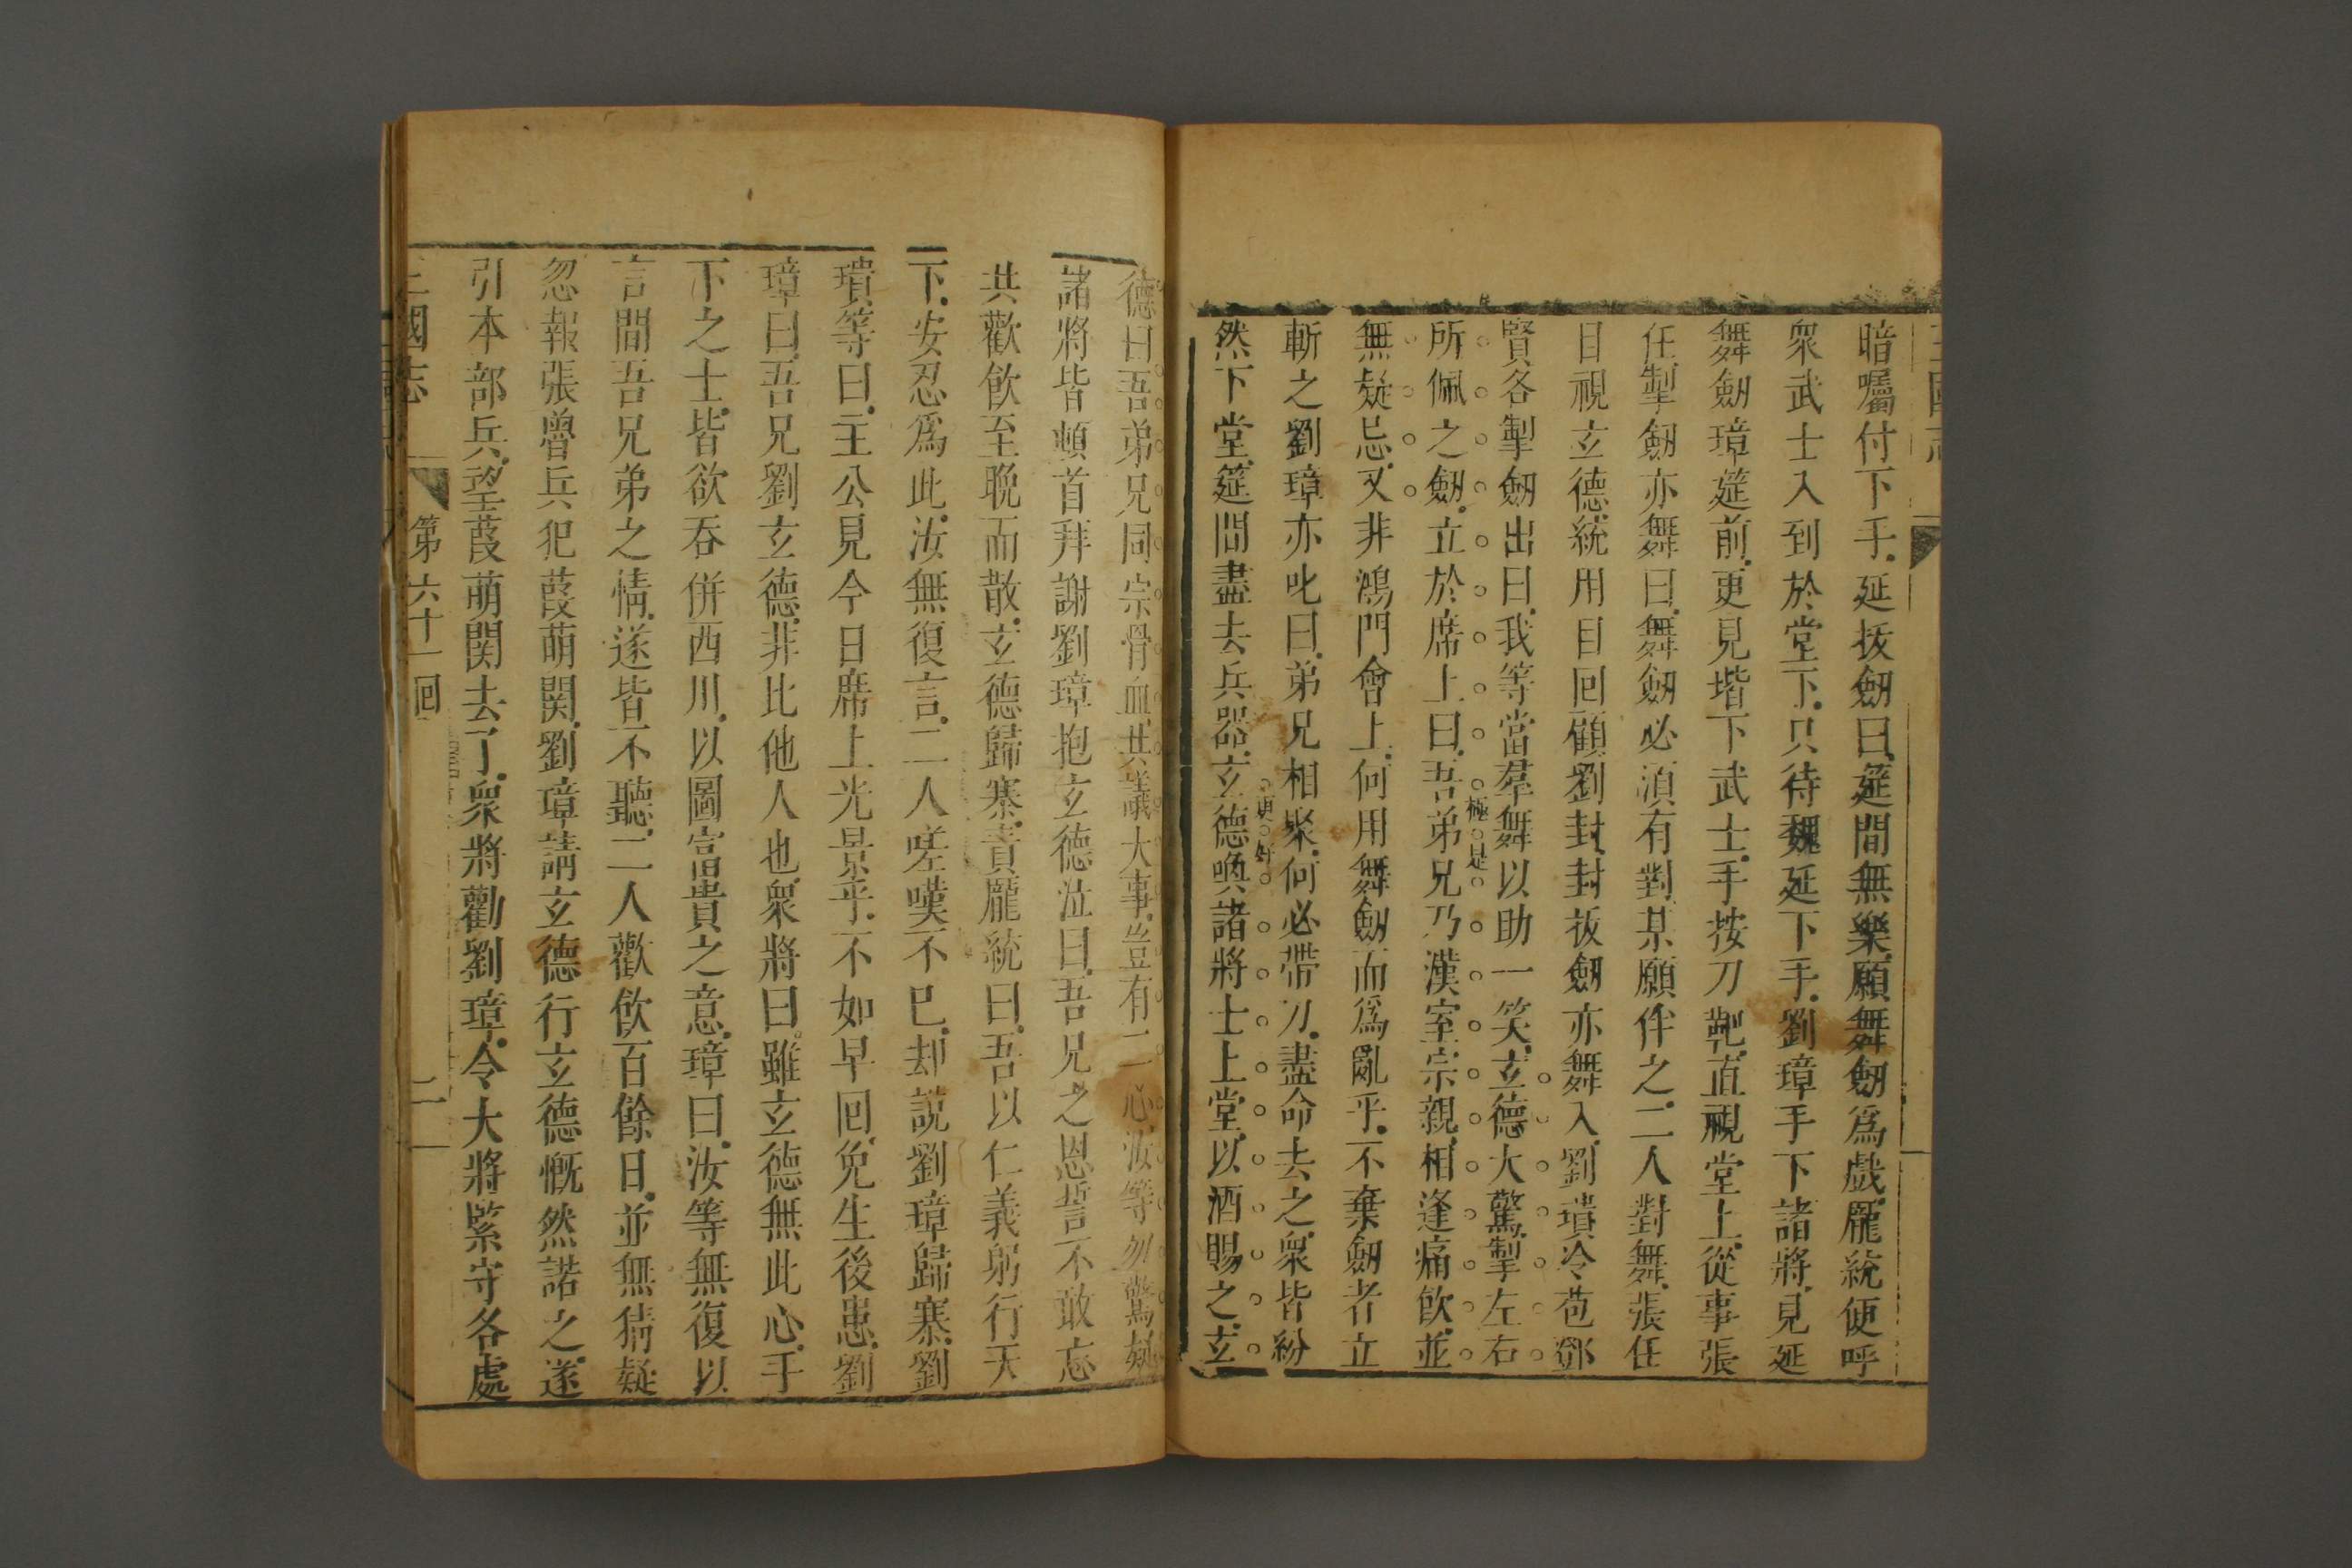 暗囑付下手.延拔劒曰.筵間無樂.願舞劒爲戲.龐統便呼
衆武士入到於堂下.只待魏延下手.劉璋手下諸將.見延
舞劒璋筵前.更見堦下武士.手按刀靶.直視堂上.從事張
任掣劒亦舞曰.舞劒必湏有對.某願伴之.二人對舞.張任
目視玄德.統用目回顧劉封.封拔劒亦舞入.劉璝冷苞鄧
賢各掣劒出曰.我等當羣舞以助一笑.玄德大驚.掣左右
所佩之劒.立於席上曰.吾弟兄乃漢室宗親.相逢痛飲.並
極是
無疑忌.又非鴻門會上.何用舞劒而爲亂乎.不棄劒者立
斬之劉璋亦叱曰.弟兄相聚.何必帶刀.盡命去之.衆皆紛
更好
然下堂.筵間盡去兵器.玄德喚諸將士上堂.以酒賜之.玄
德曰吾弟兄同宗骨血.共議大事.豈有二心.汝等勿驚疑
諸將皆頓首拜謝劉璋抱玄德泣曰.吾兄之恩誓不敢忘
共歡飲至晚而散.玄德歸寨.責龐統曰.吾以仁義躬行天
下.安忍爲此.汝無復言.二人嗟嘆不已.却説劉璋歸寨.劉
璝等曰.主公見今日席上光景乎.不如早回.免生後患.劉
璋曰.吾兄劉玄德.非比他人也.衆將曰.雖玄德無此心.手
下之士.皆欲吞併西川.以圖富貴之意.璋曰.汝等無復以
言間吾兄弟之情.遂皆不聽.二人歡飲百餘日.並無猜疑
忽報張魯兵犯葭萌関.劉璋請玄德行玄德慨然諾之.遂
引本部兵.望葭萌関去了.衆將勸劉璋.令大將緊守各處
三國志
第六十一回
二